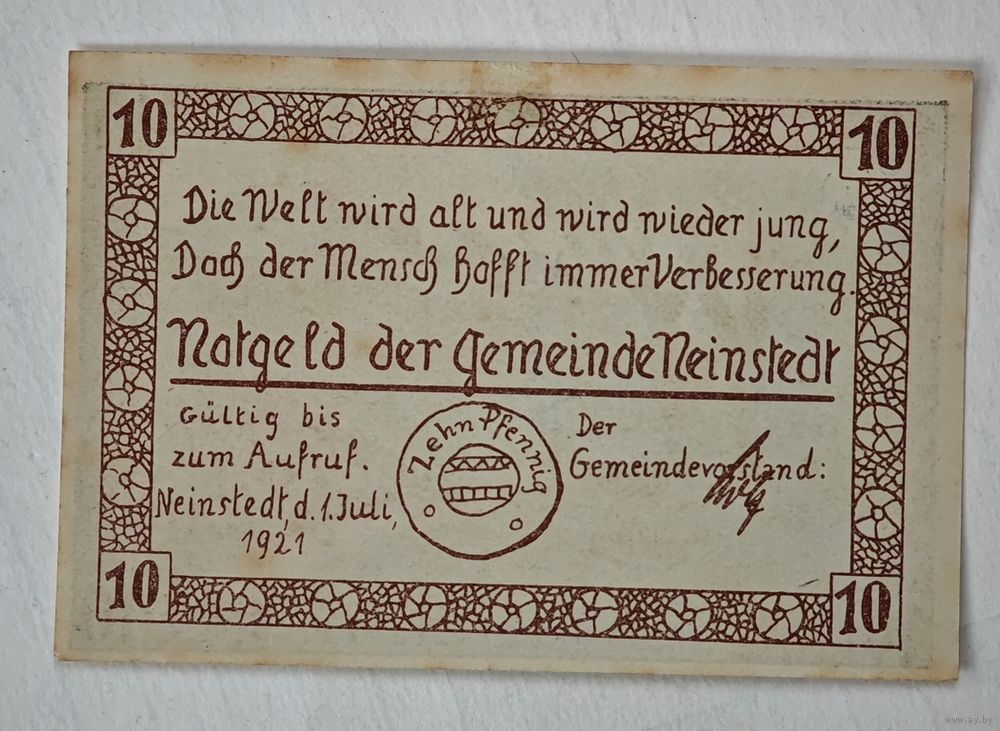 10 10
Die Welt wird alt und wird wieder jung,
Doch der Mensch hofft immer Verbesserung.
Notgeld der Gemeinde Neinstedt
Gültig bis
zum Aufruf.
Neinstedt, d. 1. Juli,
1921
Zehn Pfennig
Der
Gemeindevorstand:
10 10
www.ay.by